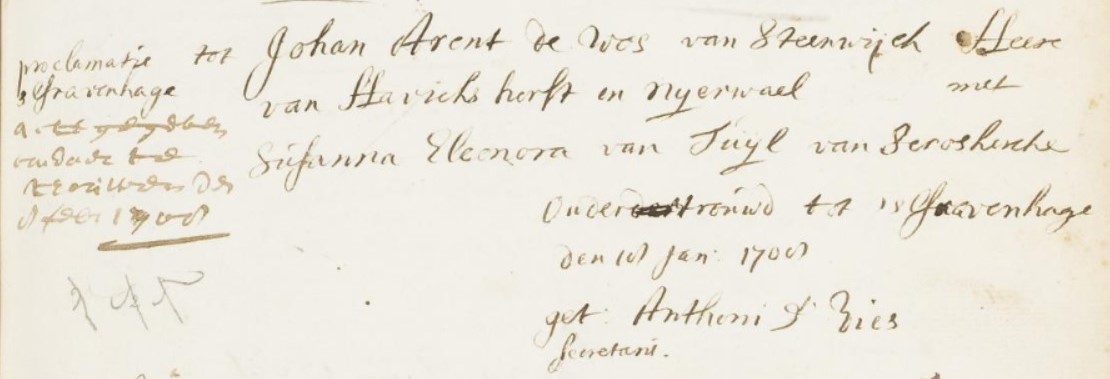 proclamatie tot
s Gravenhage
a. tt gegeven
om te
den
8 feb: 1708
Johan Arent de Vos van Steenwijck Heere
van Havickshorst en Nyerwael met
Susanna Eleonora van Tuyl van Seroskercke
Ondertrouwd tot 's Gravenhage
den 18 Jan: 1708
get: Anthoni D' Vries
Secretaris.